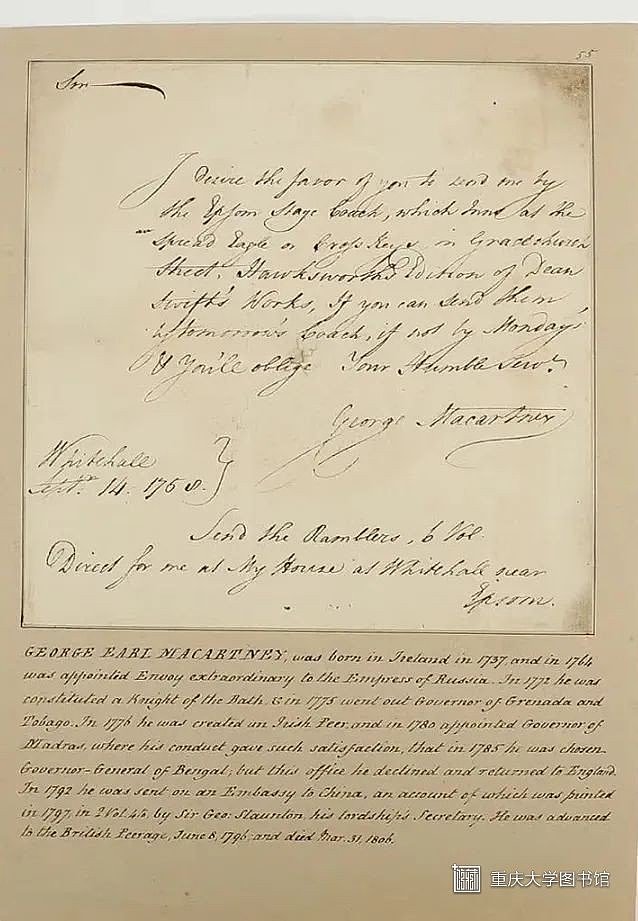 55
Sir
I desire the favor of you to send me by
the Epsom Stage Coach, which Inns at the
Spread Eagle or Cross Keys, in Gracechurch
Street, Hawksworth's Edition of Dean
Swift's Works, If you can send them
by tomorrow's Coach, if not by Mondays
& You'll oblige Your Humble Serv.t
George Macartney
Whitehall
Sept. 14. 1758.
Send the Ramblers, 6 Vol.
Direct for me at My House at Whitehall near
Epsom.
GEORGE EARL MACARTNEY, was born in Ireland in 1737, and in 1764
was appointed Envoy extraordinary to the Empress of Russia. In 1772 he was
constituted a Knight of the Bath, & in 1775 went out Governor of Grenada and
Tobago. In 1776 he was created an Irish Peer, and in 1780 appointed Governor of
Madras, where his conduct gave such satisfaction, that in 1785 he was chosen
Governor-General of Bengal; but this office he declined and returned to England.
In 1792 he was sent on an Embassy to China, an account of which was printed
in 1797, in 2 Vol. 4to. by Sir Geo: Staunton, his lordship's Secretary. He was advanced
to the British Peerage, June 8, 1796; and died Mar. 31, 1806.
重庆大学图书馆